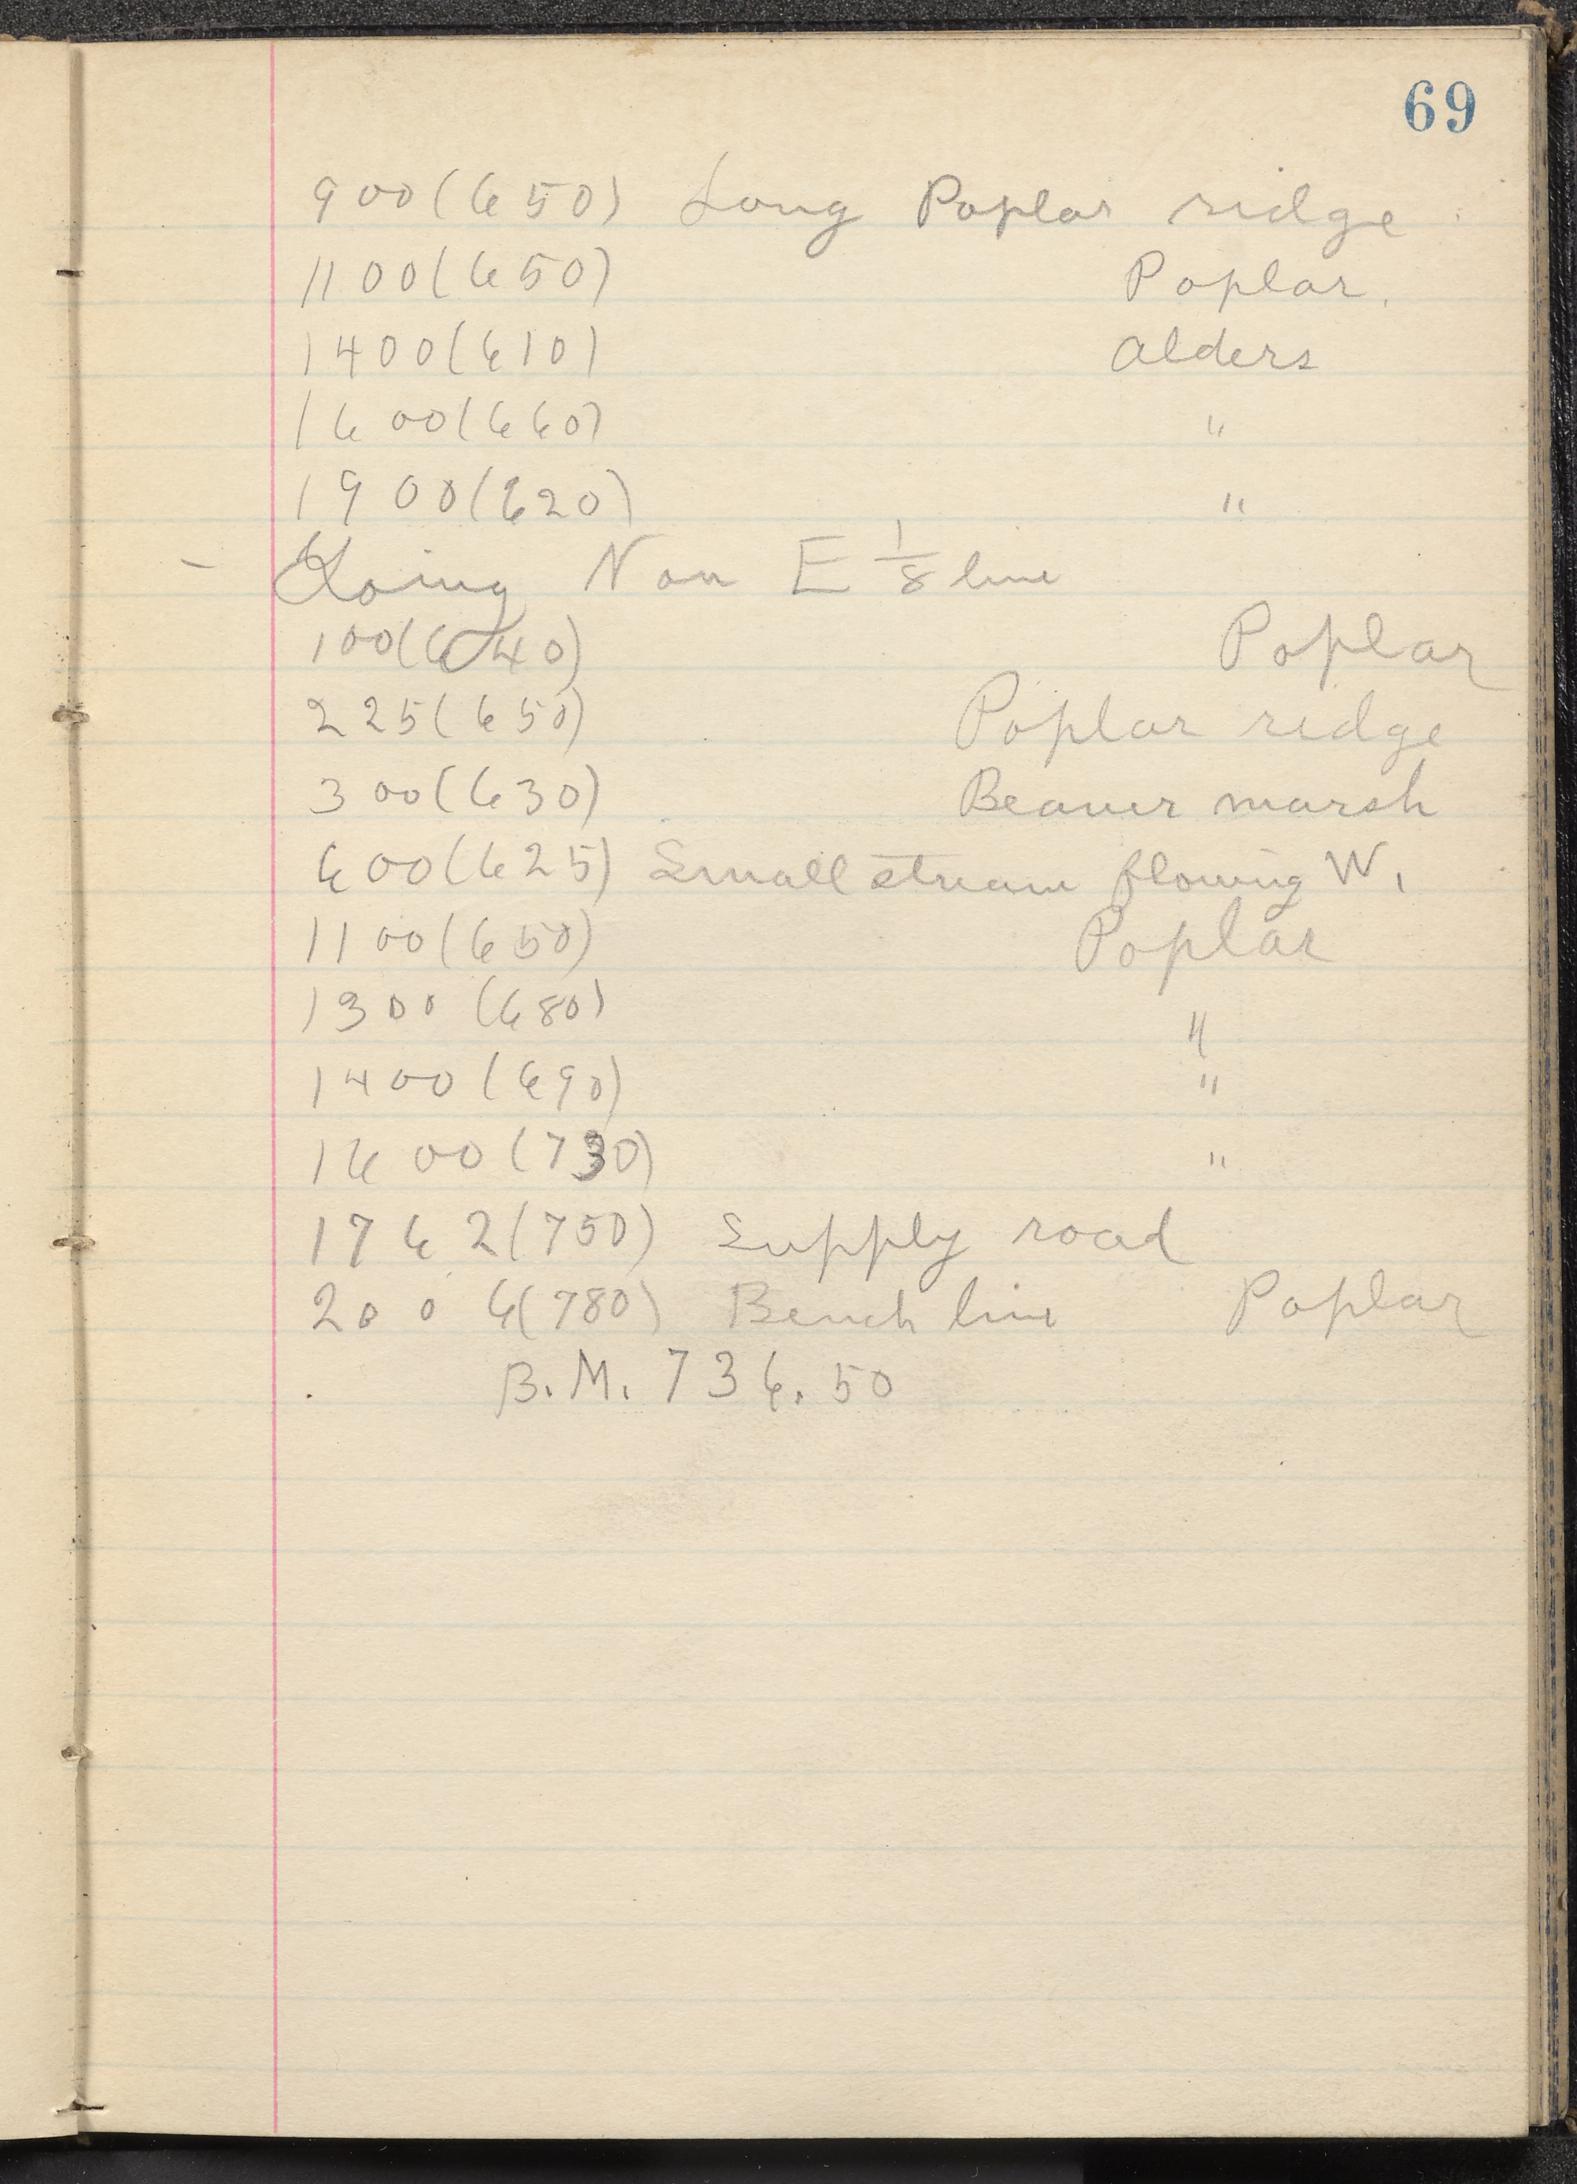 69
900(650) Long Poplar ridge
1100(650) Poplar.
1400(610) Alders
1600(660) "
1900(620) "
- Going N on E 1/8 line
100(640) Poplar
225(650) Poplar ridge
300(630) Beaver marsh
600(625) Small stream flowing W.
1100(650) Poplar
1300(680) "
1400(690) "
1600(730) "
1762(750) Supply road
2006(780) Bench line Poplar
B.M. 736.50